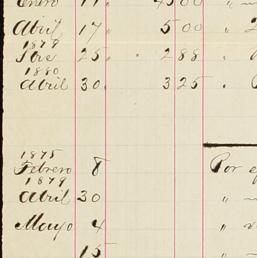 Enero 11.
Abril 17. 5 00 " 2
1879
25. 2 88 "
1880
Abril 30. 3 25 .
1875
Febrero 8 Por
1879
Abril 30 "
Mayo 4 "
15